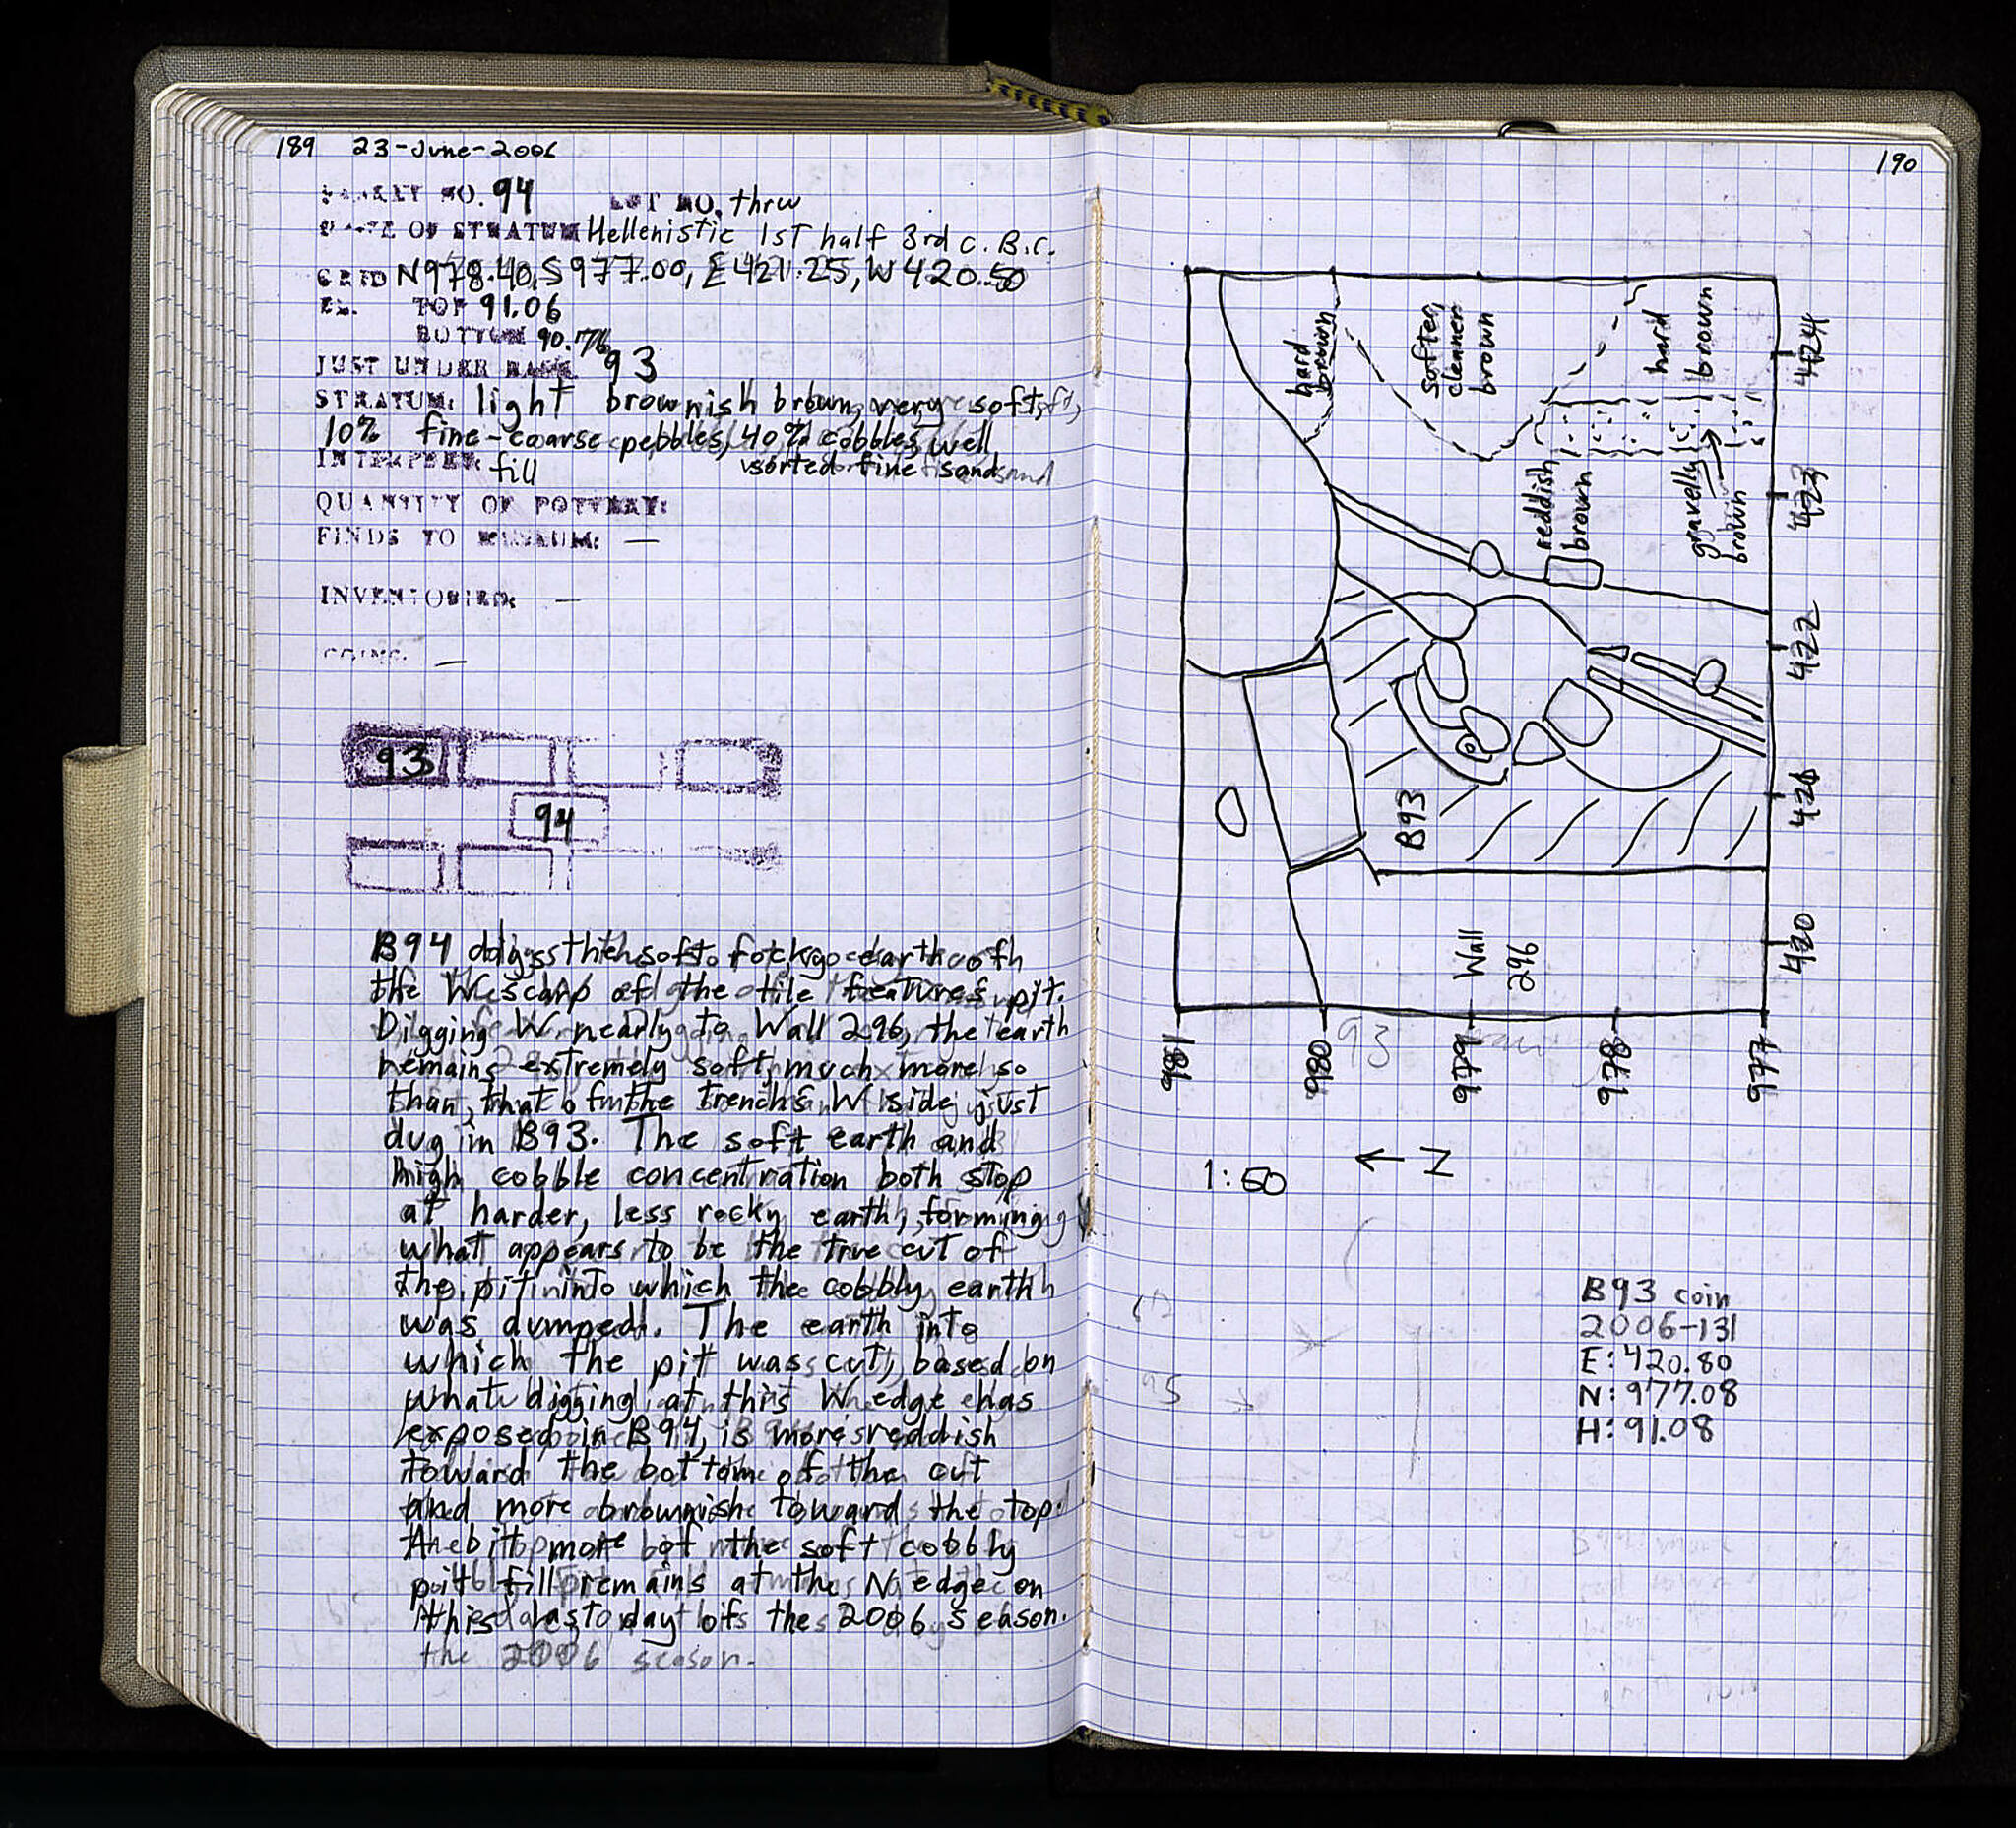 189 23-June-2006
BASKET NO. 94 LOT NO. thrw
DATE OF STRATUM Hellenistic 1st half 3rd c. B.C.
GRID N978.40, S977.00, E421.25, W420.50
EL. TOP 91.06
BOTTOM 90.76
JUST UNDER BASK. 93
STRATUM: light brownish brown, very soft,
10% fine-coarse pebbles, 40% cobbles, well
sorted fine sand
INTERPRET: fill
QUANTITY OF POTTERY:
FINDS TO MUSEUM: —
INVENTORIED: —
COINS: —
93
94
B94 digs the soft rocky earth of
the W scarp of the tile feature pit.
Digging W nearly to Wall 296, the earth
remains extremely soft, much more so
than that of the trench's W side just
dug in B93. The soft earth and
high cobble concentration both stop
at harder, less rocky earth, forming
what appears to be the true cut of
the pit into which the cobbly earth
was dumped. The earth into
which the pit was cut, based on
what digging at this W edge has
exposed in B94, is more reddish
toward the bottom of the cut
and more brownish toward the top.
A bit more of the soft cobbly
pit fill remains at the N edge on
this last day of the 2006 season.
the 2006 season.
190
hard
brown
softer,
cleaner
brown
hard
brown
reddish
brown
gravelly
brown
B93
Wall
296
424
423
422
421
420
981
980
979
978
977
93
N
1:50
B93 coin
2006-131
E: 420.80
N: 977.08
H: 91.08